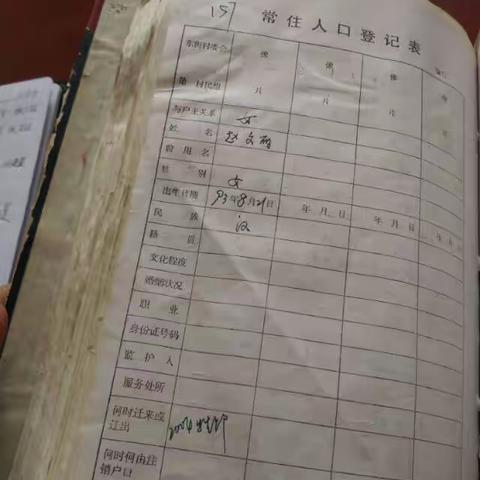 15
常住人口登记表
东街村委会 像 像 像
第 村民组 片 片 片 片
与户主关系 女
姓 名 赵文丽
曾用名
性 别 女
出生日期 93年8月21日 年 月 日 年 月 日 年 月 日
民 族 汉
籍 贯
文化程度
婚姻状况
职 业
身份证号码
监 护 人
服务处所
何时迁来或
迁出 2004
何时何由注
销户口